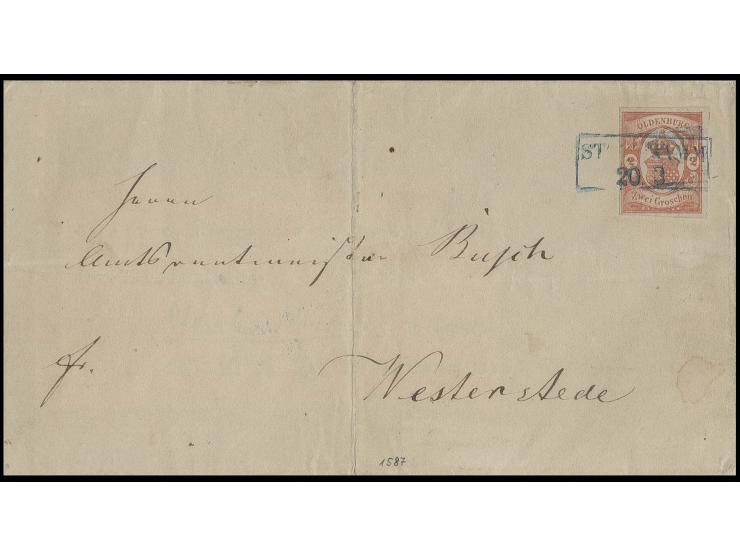 OLDENBURG
ST
20 3
2 2
Zwei Groschen
Herrn
Amtsrentmeister Busch
fr.
Westerstede
1587